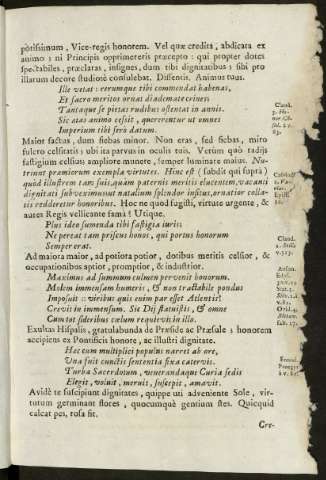 potissimum, Vice-regis honorem. Vel quæ credita, abdicata ex
animo; ni Principis opprimereris præcepto: qui propter dotes
spectabiles, præclaras, insignes, dum tibi dignitatibus; sibi pro
illarum decore studiosè consulebat. Dissentis. Animus tuus.
Ille vetat: rerumque tibi commendat habenas,
Et sacro meritos ornat diademate crines
Tantaque se pietas rudibus ostentat in annis.
Sic ætas animo cessit, quererentur ut omnes
Imperium tibi serò datum.
Claud.
Maior factus, dum fiebas minor. Non eras, sed fiebas, miro
fulcro celsitatis; ubi ita parvus in oculis tuis. Verùm quò radijs
fastigium celsius ampliore munere, semper luminate maius. Nu-
triunt præmiorum exempla virtutes. Hinc est (subdit qui suprà)
quòd illustrem tam suis, quàm paternis meritis placentem, vacanti
dignitati subveximus ut natalium splendor insitus, ornatior colla-
tis redderetur honoribus. Hoc ne quod fugisti, virtute urgente, &
nutet Regis vellicante fama! Utique.
Plus ideo sumenda tibi fastigia iuris:
Ne pereat tam priscus honos, qui portus honorum
Semper erat.
Claud.
Ad maiora maior, ad potiora potior, dotibus meritis celsior, &
occupationibus aptior, promptior, & industrior.
Maximus ad summum culmen pervenit honorum.
Molem immensam humeris, & non tractabile pondus
Imposuit: viribus quis enim par esset Atlentis!
Crevit in immensum. Sic Dij statuistis, & omne
Cum tot sideribus cælum requievit in illo.
Exultas Hispalis, gratulabunda de Præside ac Præsule; honorem
accipiens ex Pontificis honore, ac illustri dignitate.
Hæc cum multiplici populus nareet ab ore,
Una fuit cunctis sententia fixa catervis.
Turba Sacerdotum, venerandaque Curia sedis
Elegit, voluit, meruit, suscepit, amavit.
Avidè te suscipiunt dignitates, quippe uti adveniente Sole, vir-
tutum germinant flores, quocumquè gentium stes. Quicquid
calcat pes, rosa fit.
Cre-